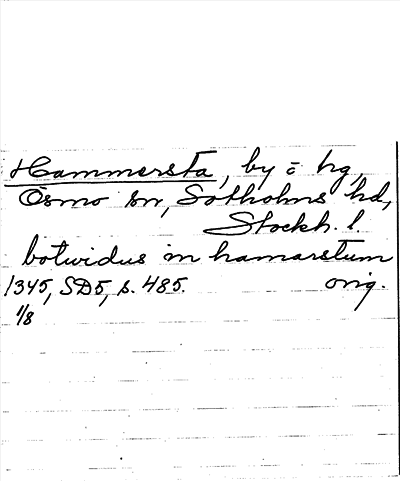 Hammersta, by o hg,
Ösmo sn, Sotholms hd,
Stockh. l.
botwidus in hamarstum
1345, SD5, s. 485. orig.
1/8